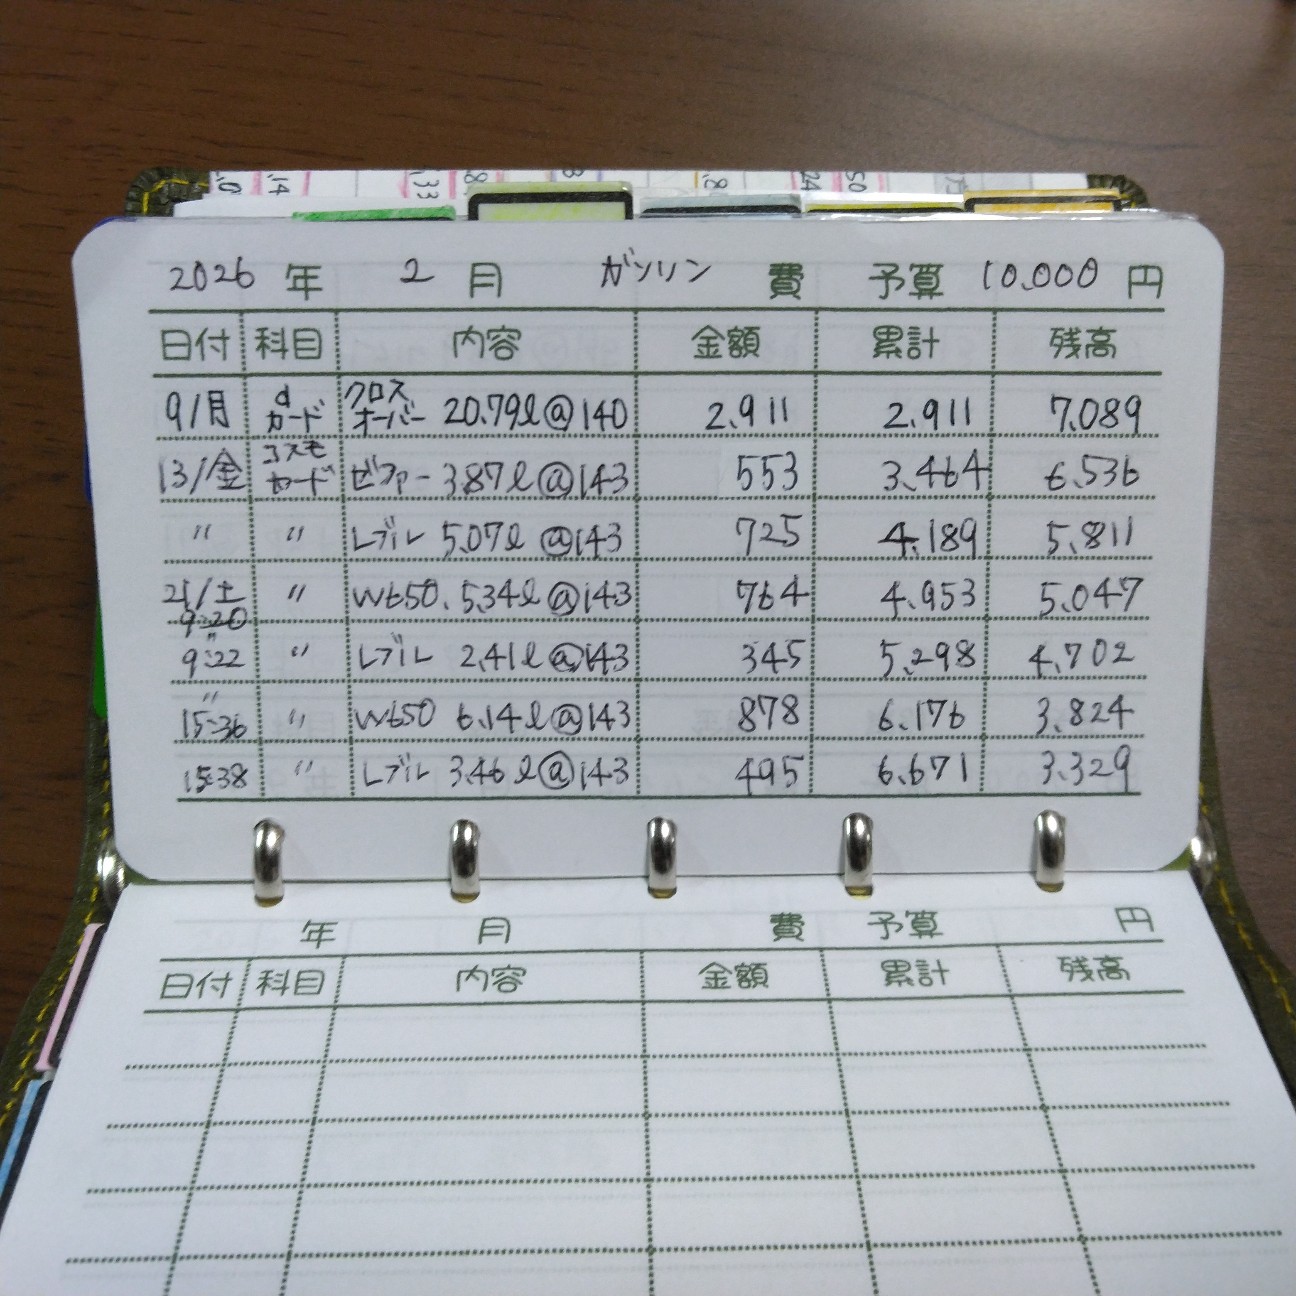 2026 年 2 月 ガソリン 費 予算 10,000 円
日付 科目 内容 金額 累計 残高
9/月 dカード クロスオーバー 20.79ℓ@140 2,911 2,911 7,089
13/金 コスモカード ゼファー 3.87ℓ@143 553 3,464 6,536
〃 〃 レブル 5.07ℓ@143 725 4,189 5,811
21/土 9:20 〃 W650. 5.34ℓ@143 764 4,953 5,047
〃 9:22 〃 レブル 2.41ℓ@143 345 5,298 4,702
〃 15:36 〃 W650 6.14ℓ@143 878 6,176 3,824
15:38 〃 レブル 3.46ℓ@143 495 6,671 3,329
年 月 費 予算 円
日付 科目 内容 金額 累計 残高